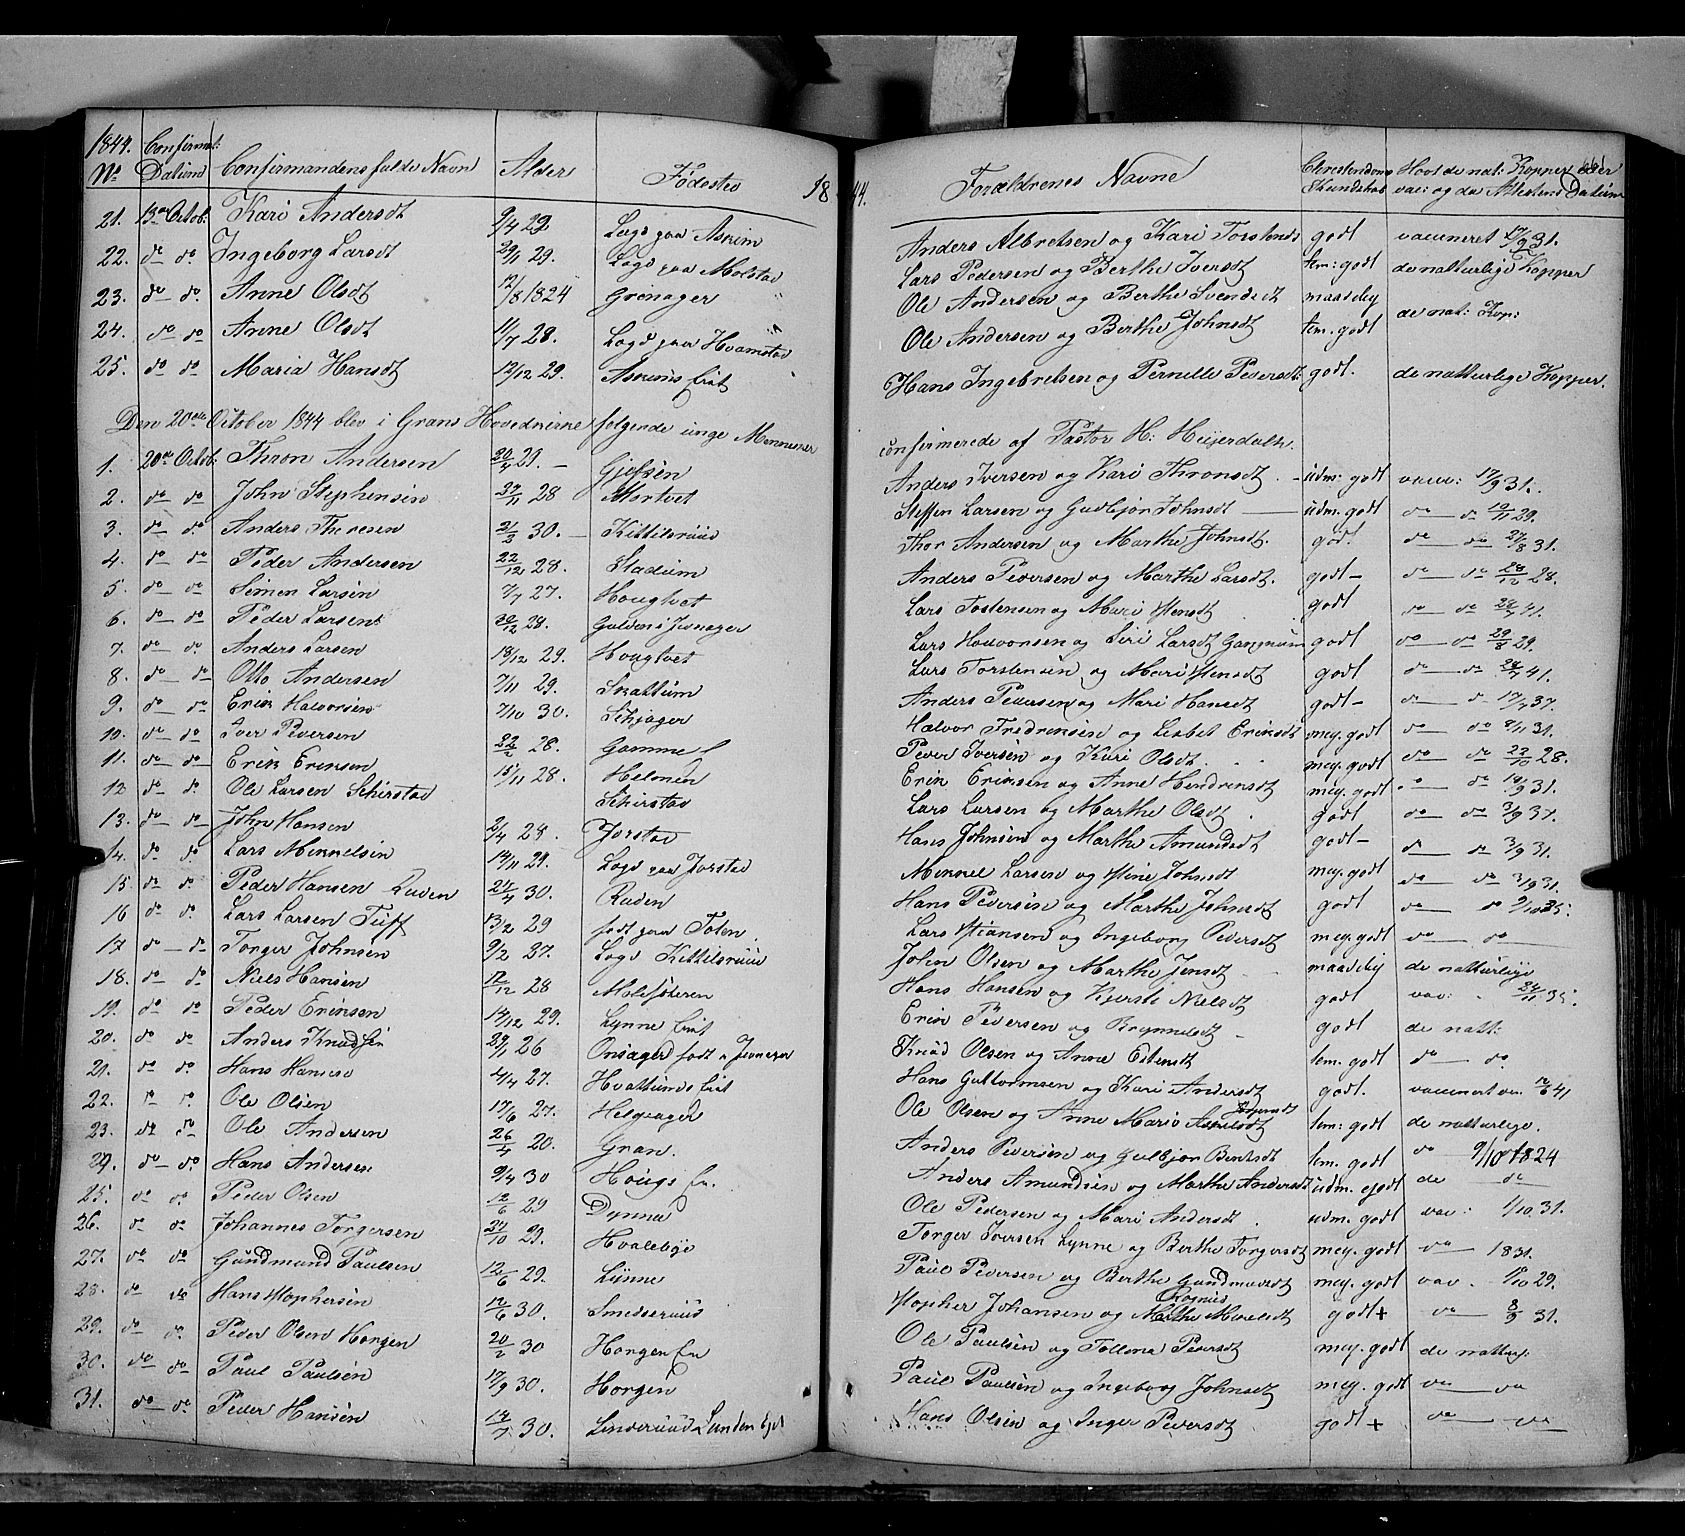 1844. Confirmat: 18 44. 661
No Datum Confirmandens fulde Navn Alder Fødested Forældrenes Navne Christendoms Kundskab Havt de nat: Kopper eller vac: og da Attestens Datum
21. 13de Octob: Kari Andersdt 9/4 29 Lagd paa Askim Anders Albretsen og Kari Torstensdt godt vaccineret 17/9 31.
22. do do Ingeborg Larsdt 29/11 29. Lagd paa Molstad Lars Pedersen og Berthe Iversdt tem: godt de naturlige Kopper
23. do do Anne Olsdt 12/8 1824 Grinager Ole Andersen og Berthe Svendsdt maadelig
24. do do Anne Olsdt 11/7 28. Lagd paa Hvamstad Ole Andersen og Berthe Johnsdt tem. godt de nat: Kop:
25. do do Maria Hansdt 12/12 29. Askims Eiet Hans Ingebretsen og Pernille Pedersdt: godt. de naturlige Kopper.
Den 20de October 1844 blev i Grans Hovedkirke følgende unge Mennesker confirmerede af Pastor H: Heyerdahl.
1. 20de Octob: Thron Andersen 20/4 29. Gjefsen Anders Iversen og Kari Thronsdt. udm: godt vacc: 17/9 31.
2. do do John Stephensen 28 Mortvet Steffen Larsen og Gudbjør Johnsdt udm. godt do do 10/11 29.
3. do do Anders Thoresen 2/2 30. Kittilsruud Thor Andersen og Marthe Johnsdt. godt. do do 27/8 31.
4. do do Peder Andersen 22/12 28. Stadum Anders Pedersen og Marthe Larsdt. godt do do 28/12 28.
5. do do Simen Larsen 7/7 27. Hougtvet Lars Tostensen og Mari Stensdt godt do do 28/7 41.
6. do do Peder Larsen 30/12 28. Gulden i Jevnager Lars Halvorsen og Siri Larsdt Gangnum godt do do 29/8 29.
7. do do Anders Larsen 18/12 29. Hougtvet Lars Torstensen og Mari Stensdt godt do do 28/7 41.
8. do do Otto Andersen 7/11 29. Skattum Anders Pedersen og Mari Hansdt godt do d 17/7 37.
9. do do Erik Halvorsen 7/10 30. Schjager Halvor Fredrensen og Lisbet Eriksdt meg. godt do do 8/11 31.
10. do do Iver Pedersen 22/2 28. Gamme Peder Iversen og Kari Olsdt. meg. godt do do 22/10 28.
11. do do Erik Eriksen 15/11 28. Helmen Erik Eriksen og Anne Hendrensdt meg. godt do 19/9 31.
12 do do Ole Larsen Schirstad Schirstad Lars Larsen og Marthe Olsdt. godt do do 3/9 37.
13. do do John Hansen 2/4 28. Jorstad Hans Johnsen og Marthe Amundsdt godt do do 3/9 31.
14. do do Lars Mikkelsen 14/11 29. Lagd paa Jorstad Mikkel Larsen og Stine Johnsdt meg. godt do do 3/9 31.
15 do do Peder Hansen Ruden 27/4 30. Ruden Hans Pedersen og Marthe Johnsdt godt do do 9/10 35.
16 do do Lars Larsen Tuff 13/2 29 født paa Toten. Lars Stiansen og Ingeborg Pedersdt meg. godt do do
17 do do Torger Johnsen 9/2 27. Lagd Kittilsruud John Olsen og Marthe Jensdt maadelig de naturlige
18. do do Niels Hansen 12/12 28 Molsteteren Hans Hansen og Kjersti Nielsdt godt vac: 24/11 35.
19. do do Peder Eriksen 14/12 29. Lynne Eiet Erik Pedersen og Brynnelsdt godt de natt:
20. do do Anders Knudsen 29/1 26 Onsager født i Jevnager Knud Olsen og Anne Estensdt tem. godt do do
21. do do Hans Hansen 4/4 27. Hvattums Eiet Hans Guttormsen og Kari Andersdt godt. vaccinert 12/6 41
22. do do Ole Olsen 17/6 27. Helgeager Ole Olsen og Anne Marie tem: godt de naturlige.
23. do do Ole Andersen 26/4 20. Gran. Anders Pedersen og Gulbjør Berntsdt tem. godt do 9/10 1824
24. do do Hans Andersen 9/4 30 Hougs Eie. Anders Amundsen og Marthe Andersdt udm. godt de do
25. do do Peder Olsen 12/6 29 Dynna Ole Pedersen og Mari Andersdt. udm. godt vac: 1/10 31.
26. do do Johannes Torgersen 24/10 29. Hvalebye Torger Iversen Lynne og Berthe Torgersdt meg. godt do 1831.
27. do do Gudmund Paulsen 12/6 29. Lynne Paul Pedersen og Berthe Gundmundsdt meg. godt vac. 9/10 29.
28. do do Hans Stophersen 12/6 30. Smedsruud Stopher Johansen og godt + do 8/9 31.
29. do do Peder Olsen Horgen 20/2 30 Horgen Eie Ole Paulsen og Tollena Pedersdt meg. godt de naturl:
30. do do Paul Paulsen 17/9 30. Horgen Paul Paulsen og Ingeborg Johnsdt meg. godt do do
31. do do Peder Hansen 14/7 30. Linderuud Lunden Eyet Hans Olsen og Inger Pedersdt godt + do do